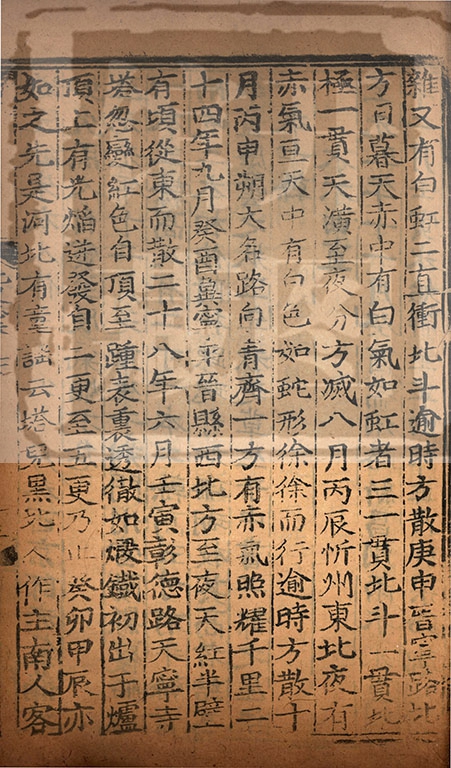 雜又有白虹二直衝北斗逾時方散庚申晉寧路北
方日暮天赤中有白氣如虹者三一貫北斗一貫北
極一貫天潢至夜分方滅八月丙辰忻州東北夜有
赤氣亘天中有白色如蛇形徐徐而行逾時方散十
月丙申朔大名路向青齊一方有赤氣照耀千里二
十四年九月癸酉冀寧平晉縣西北方至夜天紅半壁
有頃從東而散二十八年六月壬寅彰德路天寧寺
塔忽變紅色自頂至踵表裏透徹如煅鐵初出于爐
頂上有光焰迸發自二更至五更乃止癸卯甲辰亦
如之先是河北有童謠云塔兒黑北人作主南人客